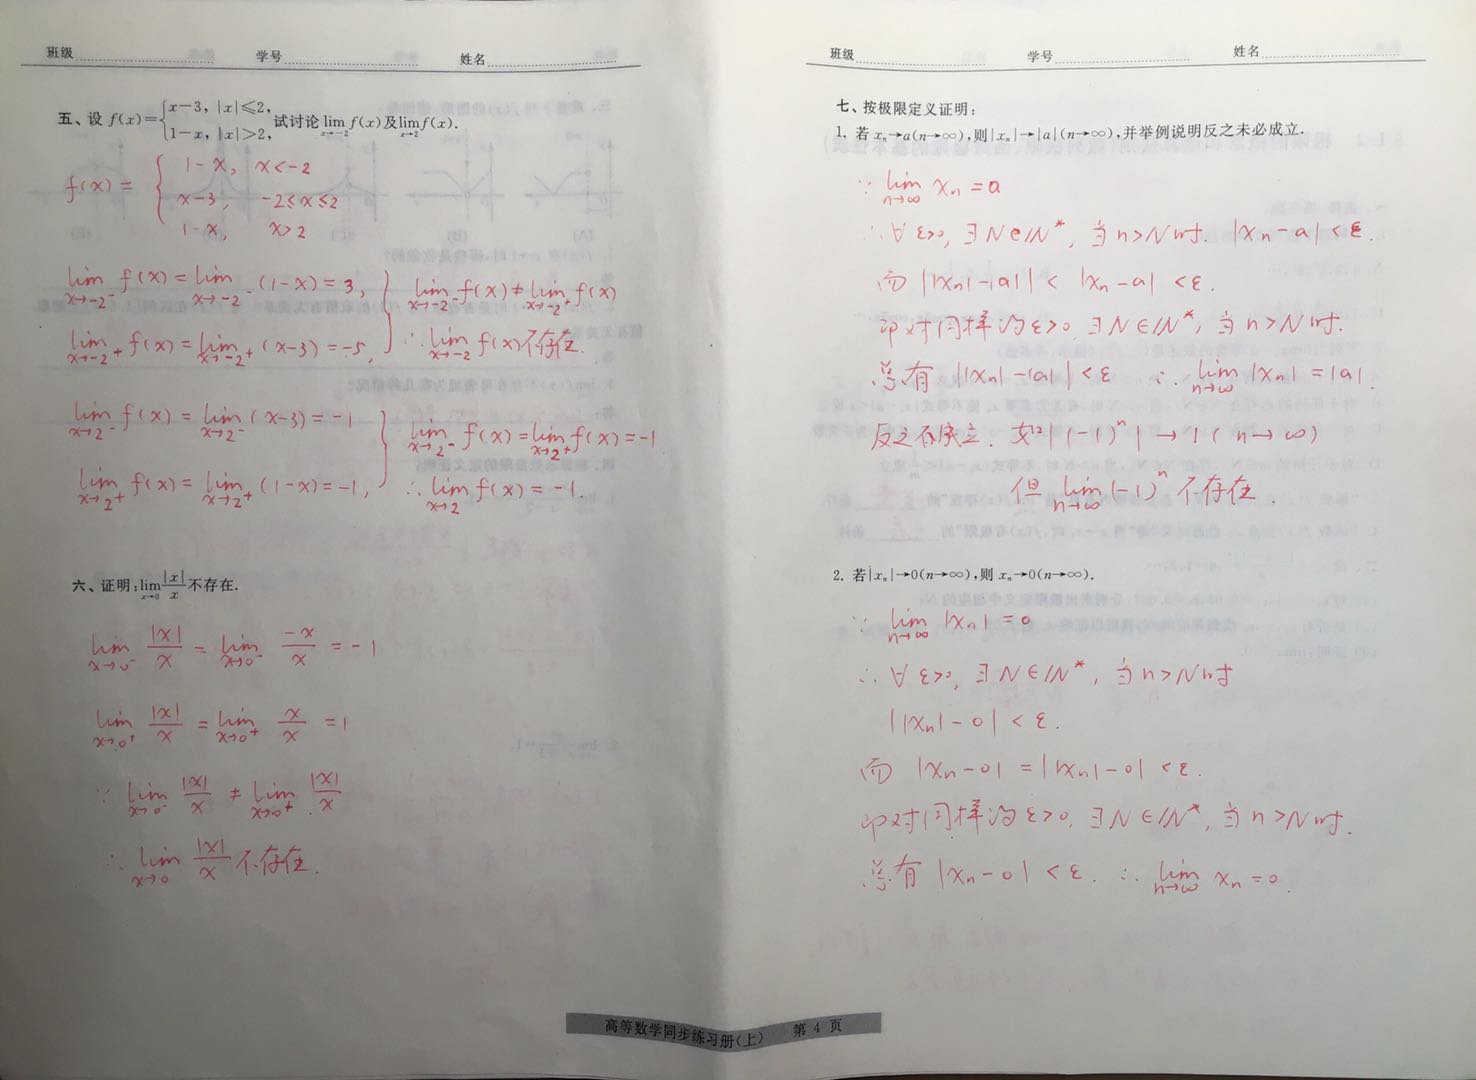 班级 学号 姓名
五、设 f(x)={x-3, |x|≤2, 1-x, |x|>2, 试讨论 lim x→-2 f(x)及 lim x→2 f(x).
f(x) = { 1-x, x<-2
x-3, -2≤x≤2
1-x, x>2
lim x→-2⁻ f(x) = lim x→-2⁻ (1-x) = 3,
lim x→-2⁺ f(x) = lim x→-2⁺ (x-3) = -5,
lim x→-2⁻ f(x) ≠ lim x→-2⁺ f(x)
∴ lim x→-2 f(x)不存在.
lim x→2⁻ f(x) = lim x→2⁻ (x-3) = -1
lim x→2⁺ f(x) = lim x→2⁺ (1-x) = -1,
lim x→2⁻ f(x) = lim x→2⁺ f(x) = -1
∴ lim x→2 f(x) = -1.
六、证明: lim x→0 |x|/x 不存在.
lim x→0⁻ |x|/x = lim x→0⁻ -x/x = -1
lim x→0⁺ |x|/x = lim x→0⁺ x/x = 1
∵ lim x→0⁻ |x|/x ≠ lim x→0⁺ |x|/x
∴ lim x→0 |x|/x 不存在.
班级 学号 姓名
七、按极限定义证明:
1. 若 xₙ→a(n→∞),则|xₙ|→|a|(n→∞),并举例说明反之未必成立.
∵ lim n→∞ xₙ = a
∴ ∀ ε>0, ∃ N∈N*, 当 n>N时. |xₙ-a| < ε.
而 ||xₙ|-|a|| < |xₙ-a| < ε.
即对同样的 ε>0, ∃ N∈N*, 当 n>N时.
总有 ||xₙ|-|a|| < ε ∴ lim n→∞ |xₙ| = |a|.
反之不成立. 如 |(-1)ⁿ| → 1 (n→∞)
但 lim n→∞ (-1)ⁿ 不存在.
2. 若|xₙ|→0(n→∞),则 xₙ→0(n→∞).
∵ lim n→∞ |xₙ| = 0
∴ ∀ ε>0, ∃ N∈N*, 当 n>N时
||xₙ|-0| < ε.
而 |xₙ-0| = ||xₙ|-0| < ε.
即对同样的 ε>0, ∃ N∈N*, 当 n>N时.
总有 |xₙ-0| < ε. ∴ lim n→∞ xₙ = 0.
高等数学同步练习册(上) 第 4 页